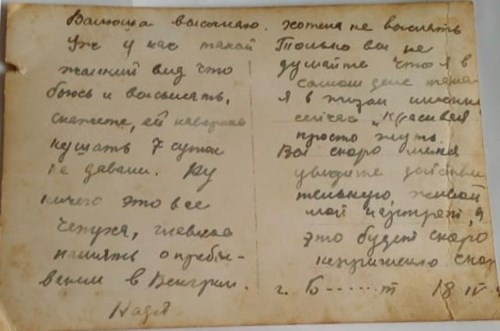 Валюша высылаю.
Уж у нас такой
жалкий вид что
боюсь и высылать,
скажете, ей наверно
кушать 7 суток
не давали. Ну
ничего это все
чепуха, главное
память о пребы-
вении в Венгрии.
Надя
хотела не высылать
Только вы не
думайте что я в
самом деле такая
я в жизни
сейчас „красивая
просто жуть.
Вы скоро меня
увидите действи
тельную, живой
мой портрет, а
это будет скоро
скоро
г. Б......т 18 IV